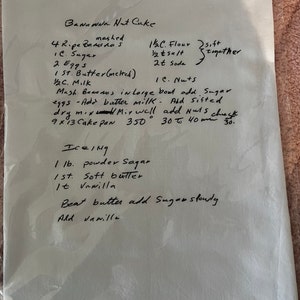 Bananna Nut Cake
mashed
4 Ripe Bananas 1½ C. Flour } sift
1 C Sugar ½ t Salt together
2 Eggs 2 t Soda
1 St. Butter (melted)
½ C. Milk 1 C. Nuts
Mash Bananas in large bowl add Sugar
eggs - Add butter milk. Add Sifted
dry mix Mix well add Nuts check
9 x 13 Cake pan 350° 30 to 40 min 30.
Iceing
1 lb. powder Sugar
1 st. Soft butter
1 t Vanilla
Beat butter add Sugar slowly
Add vanilla